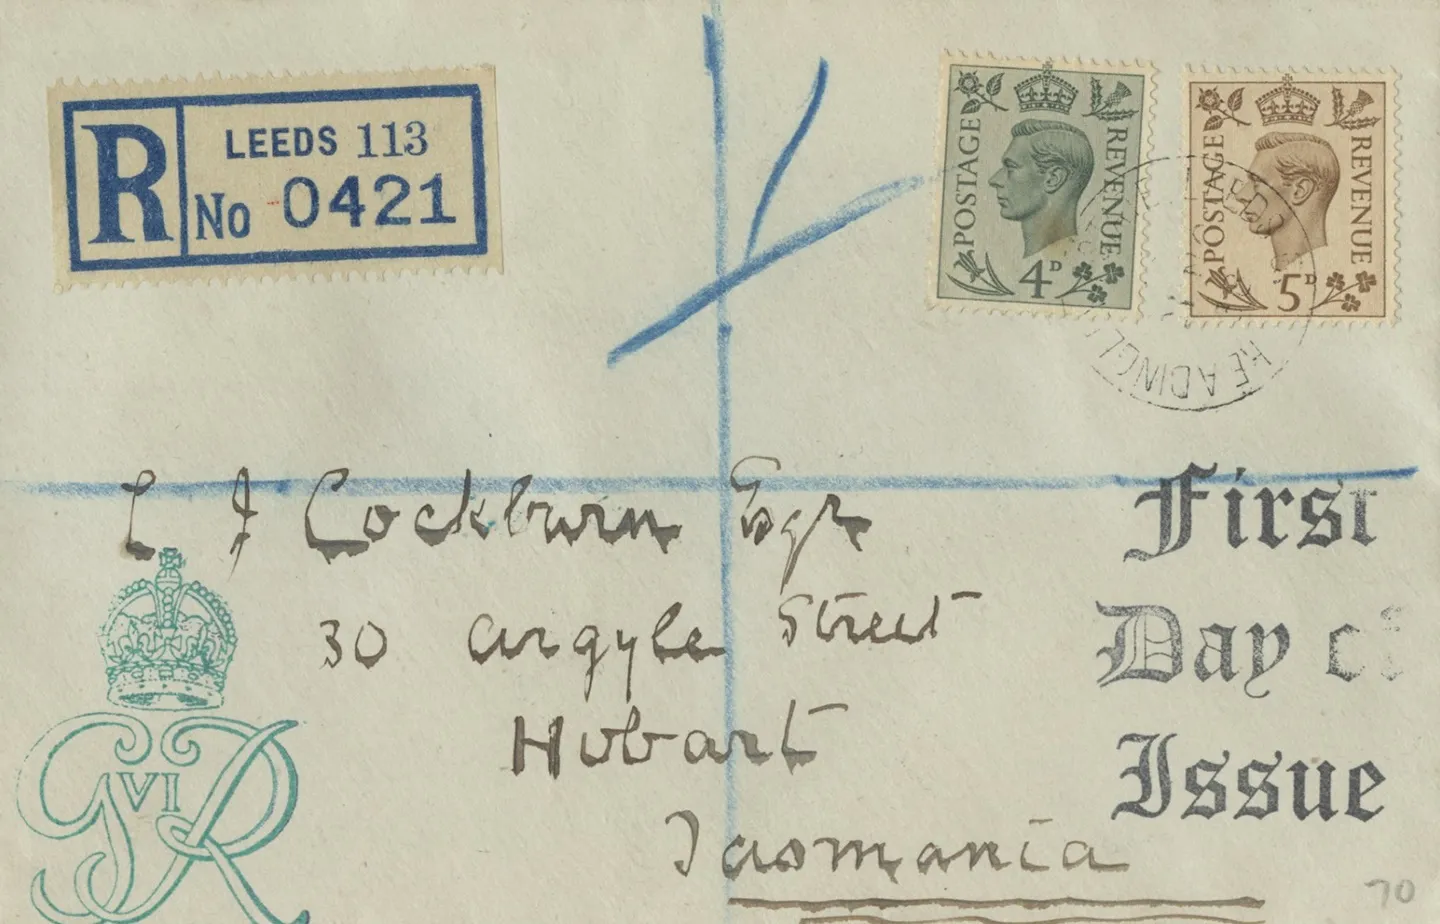 R
LEEDS 113
No 0421
POSTAGE REVENUE
4D
POSTAGE REVENUE
5D
HEADINGL
L J Cockburn Esqr
30 Argyle Street
Hobart
Tasmania
First
Day of
Issue
GVIR
70